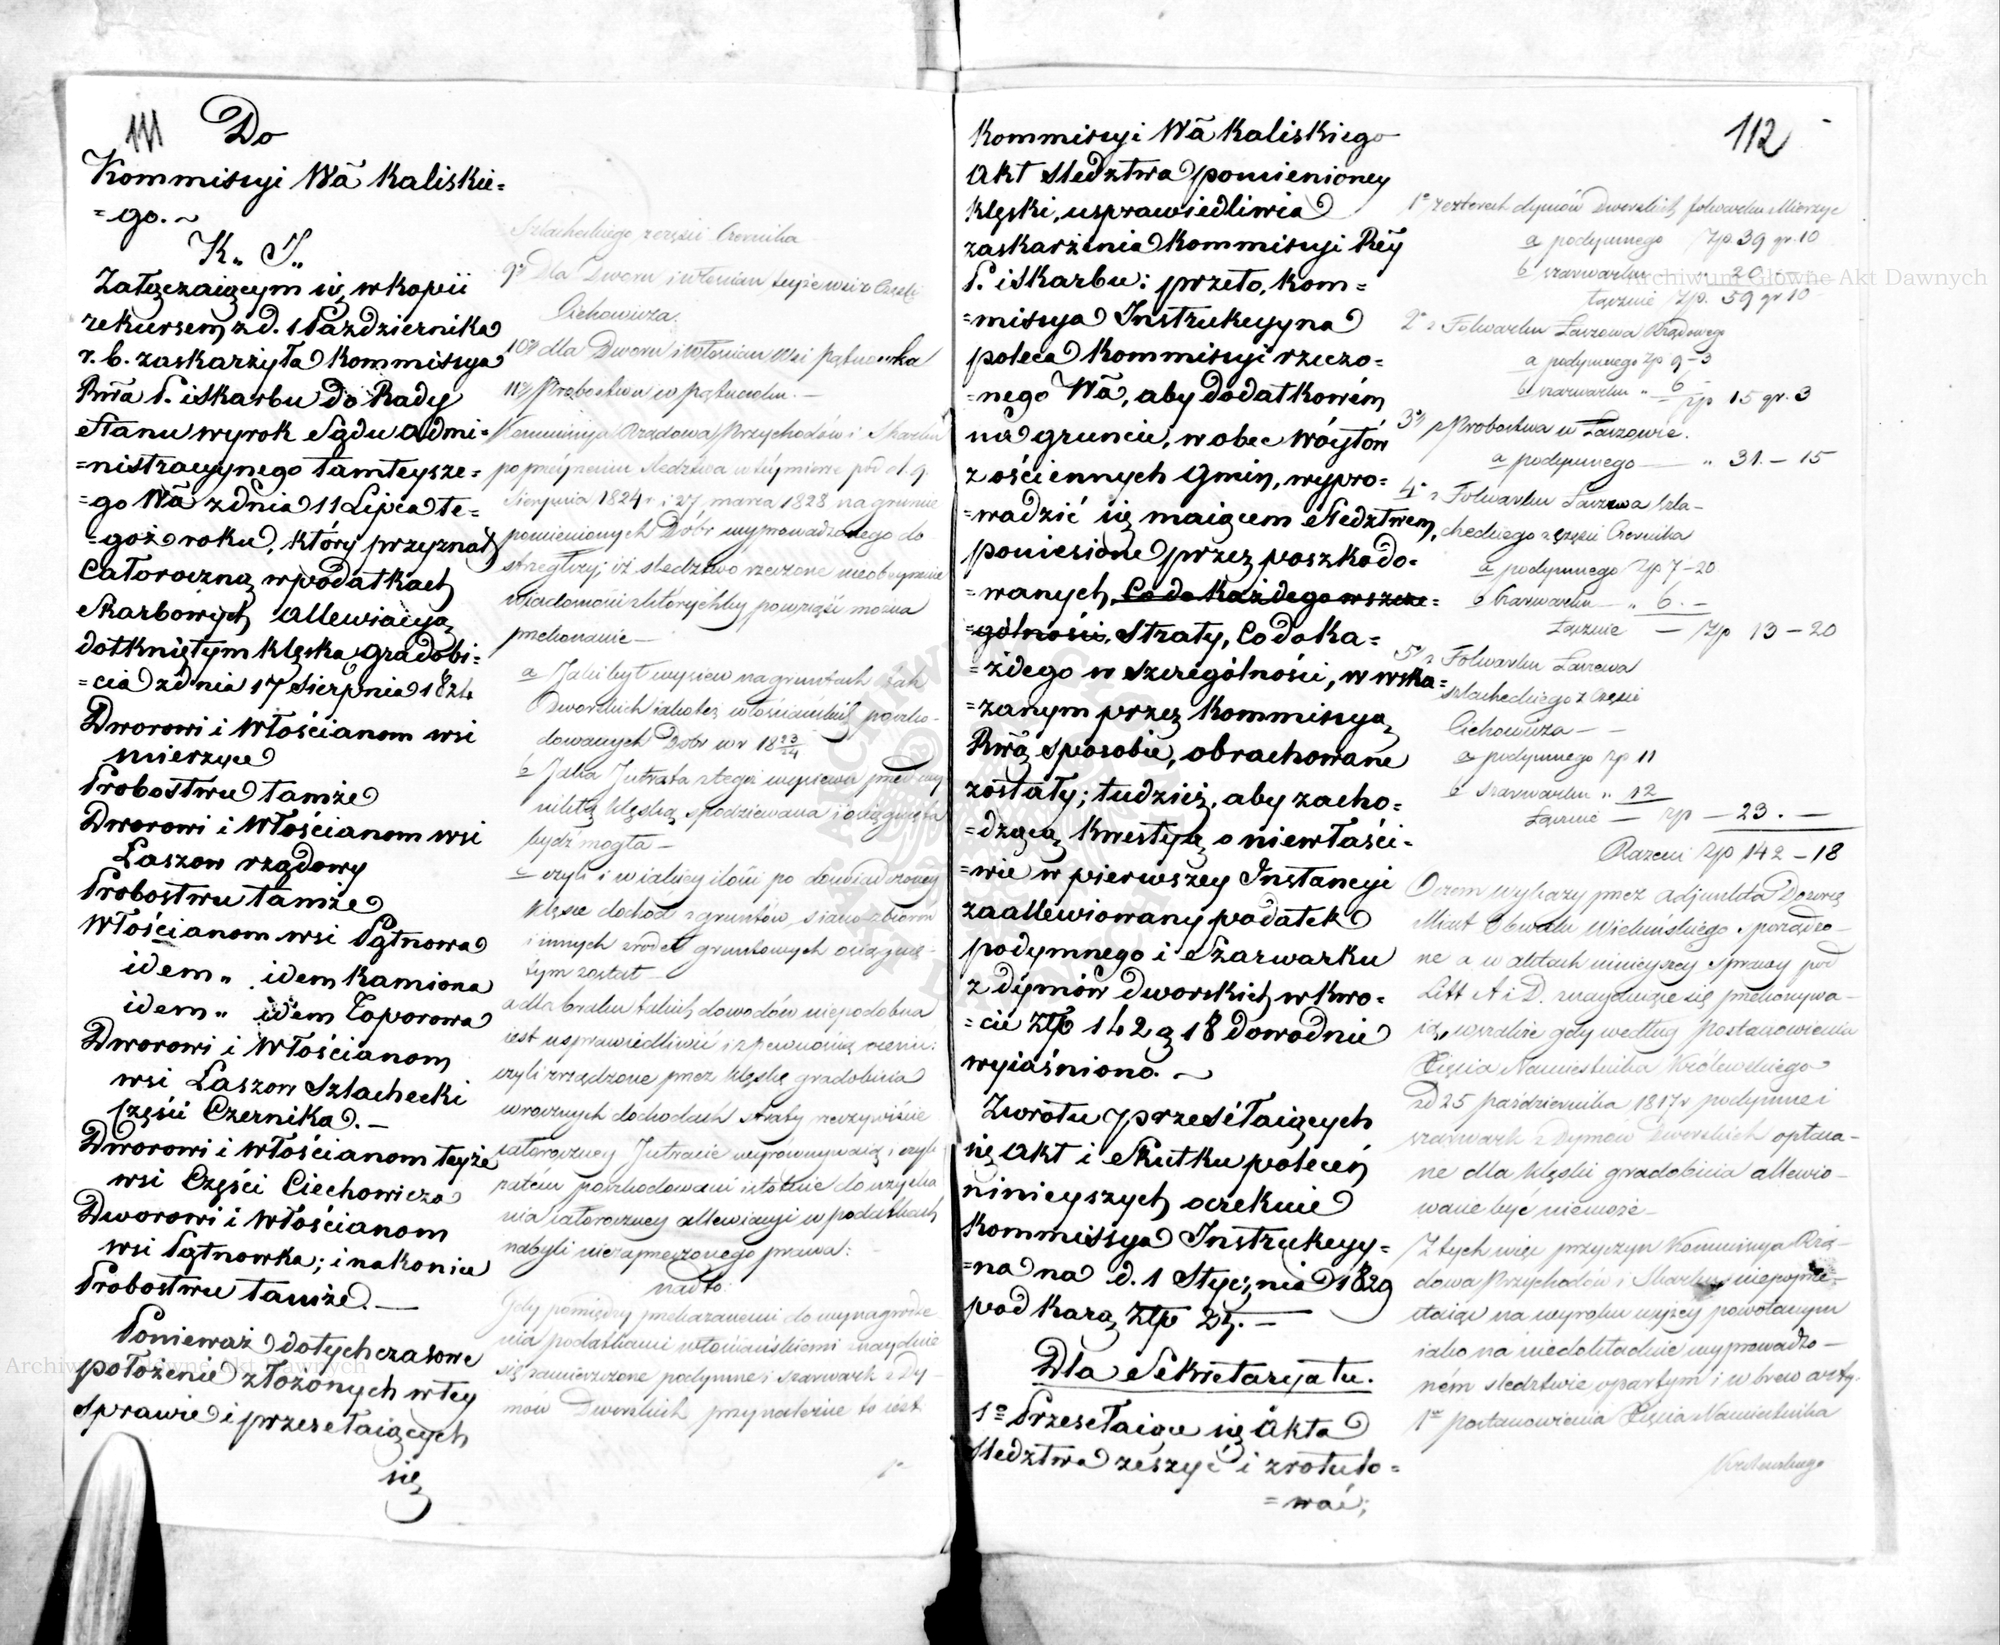 111
Do
Kommissyi Wa Kaliskie=
=go. ~
K. I.
Załączaiącym się w kopii
rekursem z d. 1 Października
r. b. zaskarżyła Kommissya
Rwa P. i Skarbu Do Rady
Stanu wyrok Sądu Admi=
=nistracyjnego tamteysze=
=go Wa z dnia 11 Lipca te=
=goż roku, który przyznał
Całoroczną w podatkach
Skarbowych allewiacyą
dotkniętym klęską gradobi=
=cia z dnia 17 Sierpnia 1824
Dworowi i Włościanom wsi
Mierzyce
Probostwu tamże
Dworowi i Włościanom wsi
Łaszow rządowy
Probostwu tamże
Włościanom wsi Pątnowa
idem „ idem Kamiona
idem „ idem Toporowa
Dworowi i Włościanom
wsi Łaszow Szlachecki
Części Czernika. —
Dworowi i Włościanom teyże
wsi Części Ciechowicza
Dworowi i Włościanom
wsi Pątnowka; i nakoniec
Probostwu tamże. —
Ponieważ dotychczasowe
położenie złożonych w tey
sprawie i przesełaiących
się
Szlacheckiego z części Czernika
9° Dla Dworu i włościan teyże wsi z Części
Cichowicza.
10° dla Dworu i Włościan Wsi Pątnowka
11° Probostwu w Pątnowku. —
Kommissya Rządowa Przychodów i Skarbu
po przeyrzeniu śledztwa w tey mierze pod d. 9.
Sierpnia 1824 r. i 27 marca 1828 na gruncie
pomienionych Dóbr wyprowadzonego do
strzegłszy; iż śledztwo rzeczone nieobeymuie
wiadomości z którychby powziąść można
przekonanie —
a Jaki był wysiew na gruntach tak
Dworskich iakoteż włościańskich poszko-
dowanych Dóbr w r 18 23/24
b Jaka Intrata z tego wysiewu przed wy
nikłą klęską spodziewana i osiągnięta
bydź mogła —
c czyli i w iakiey ilości po doświadczoney
klęsce dochód z gruntów, siano zbiorow
i innych źródeł gruntowych osiągnię-
tym został —
a dla braku takich dowodów niepodobna
iest usprawiedliwić i z pewnością ocenić:
czyli zrządzone przez klęskę gradobicia
w rocznych dochodach straty rzeczywiście
całoroczney Intracie wyrównywaią, i czyli
zatém poszkodowani istotnie do uzyska
nia całoroczney allewiacyi w podatkach
nabyli niezaprzeczonego prawa:
nadto:
Gdy pomiędzy przekazanemi do wynagrodze
nia podatkami włościańskiemi znayduie
się zamieszczone podymne i szarwark z Dy-
mów Dworskich przynależne to iest
1°
112
Kommissyi Wa Kaliskiego
Akt śledztwa pomienioney
klęski, usprawiedliwia
zaskarżenia Kommissyi Rey
P. i Skarbu: przeto, Kom=
=missya Instrukcyyna
poleca Kommissyi rzeczo=
=nego Wa, aby dodatkowém
na gruncie, w obec Wóytów
z ościennych Gmin, wypro=
=wadzić się maiącem śledztwem,
poniesione przez poszkodo=
=wanych, Co do każdego wszcze=
=gólności, straty, Co do ka=
=żdego w szczególności, w wska=
=zanym przez Kommissyą
Rwą sposobie, obrachowane
zostały; tudzież, aby zacho=
=dzącą kwestyą o niewłaści=
=wie w pierwszey Instancyi
zaallewiowany podatek
podymnego i Szarwarku
z dymów dworskich w kwo=
=cie Złp 142 g 18 dowodnie
wyiaśniono. ~
Zwrotu przesełaiących
się Akt i Skutku poleceń
ninieyszych oczekuie
Kommissya Instrukcyy=
=na na d. 1 Stycznia 1829
pod karą Złp 25. —
Dla Sekretaryatu.
1° Przesełaiące się Akta
śledztwa zeszyć i zrotulo=
=wać;
1° z czterech dymów Dworskich folwarku Mierzyc
a podymnego Zp. 39 gr. 10
b szarwarku „ 20. —
łącznie Zp. 59 gr 10
2° z Folwarku Łaszowa Rządowego
a podymnego Zp 9 - 3
b szarwarku „ 6 —
Zp 15 gr. 3
3° z Probostwa w Łaszowie.
a podymnego — „ 31. — 15
4° z Folwarku Łaszowa Szla-
checkiego z części Czernika
a podymnego Zp 7 - 20
b Szarwarku — „ 6. —
łącznie — Zp 13 — 20
5° z Folwarku Łaszowa
szlacheckiego z Części
Cichowicza — —
a podymnego Zp 11
b szarwarku „ 12
łącznie — Zp — 23. —
Razem Zp 142 — 18
O czem wykazy przez Adjunkta Dozorcę
Miast Obwodu Wieluńskiego sporządzo-
ne a w aktach ninieyszey sprawy pod
Litt A i D. znayduiące się przekonywa-
ią, wszakże gdy według Postanowienia
Xięcia Namiestnika Królewskiego
z d 25 października 1817 r podymne i
szarwark z Dymów Dworskich opłaca-
ne dla klęski gradobicia allewio-
wane być niemoże —
Z tych więc przyczyn Kommissya Rzą-
dowa Przychodów i Skarbu niepoprze-
staiąc na wyroku wyżey powołanym
iako na niedokładnie wyprowadzo-
ném śledztwie opartym i w brew arty.
1° postanowienia Xięcia Namiestnika